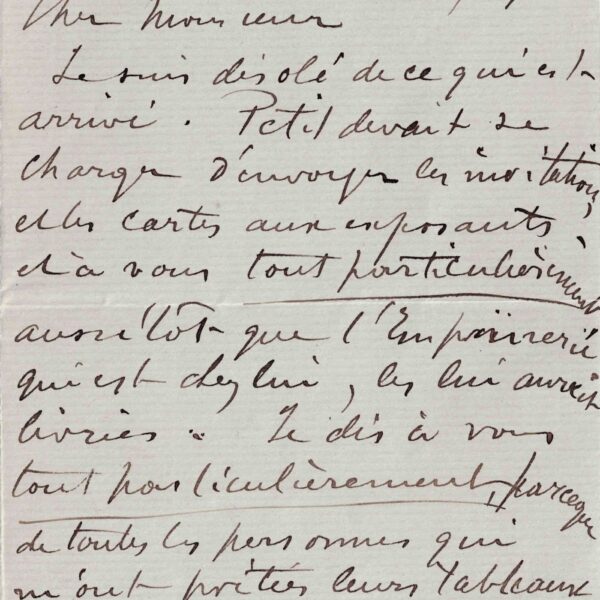 Cher Monsieur
Je suis désolé de ce qui est
arrivé. Petit devait se
charger d'envoyer les invitations,
et les cartes aux exposants
et à vous tout particulièrement
aussitôt que l'Imprimerie
qui est chez lui, les lui aurait
livrées. Je dis à vous
tout particulièrement, parceque
de toutes les personnes qui
m'ont prêtées leurs tableaux